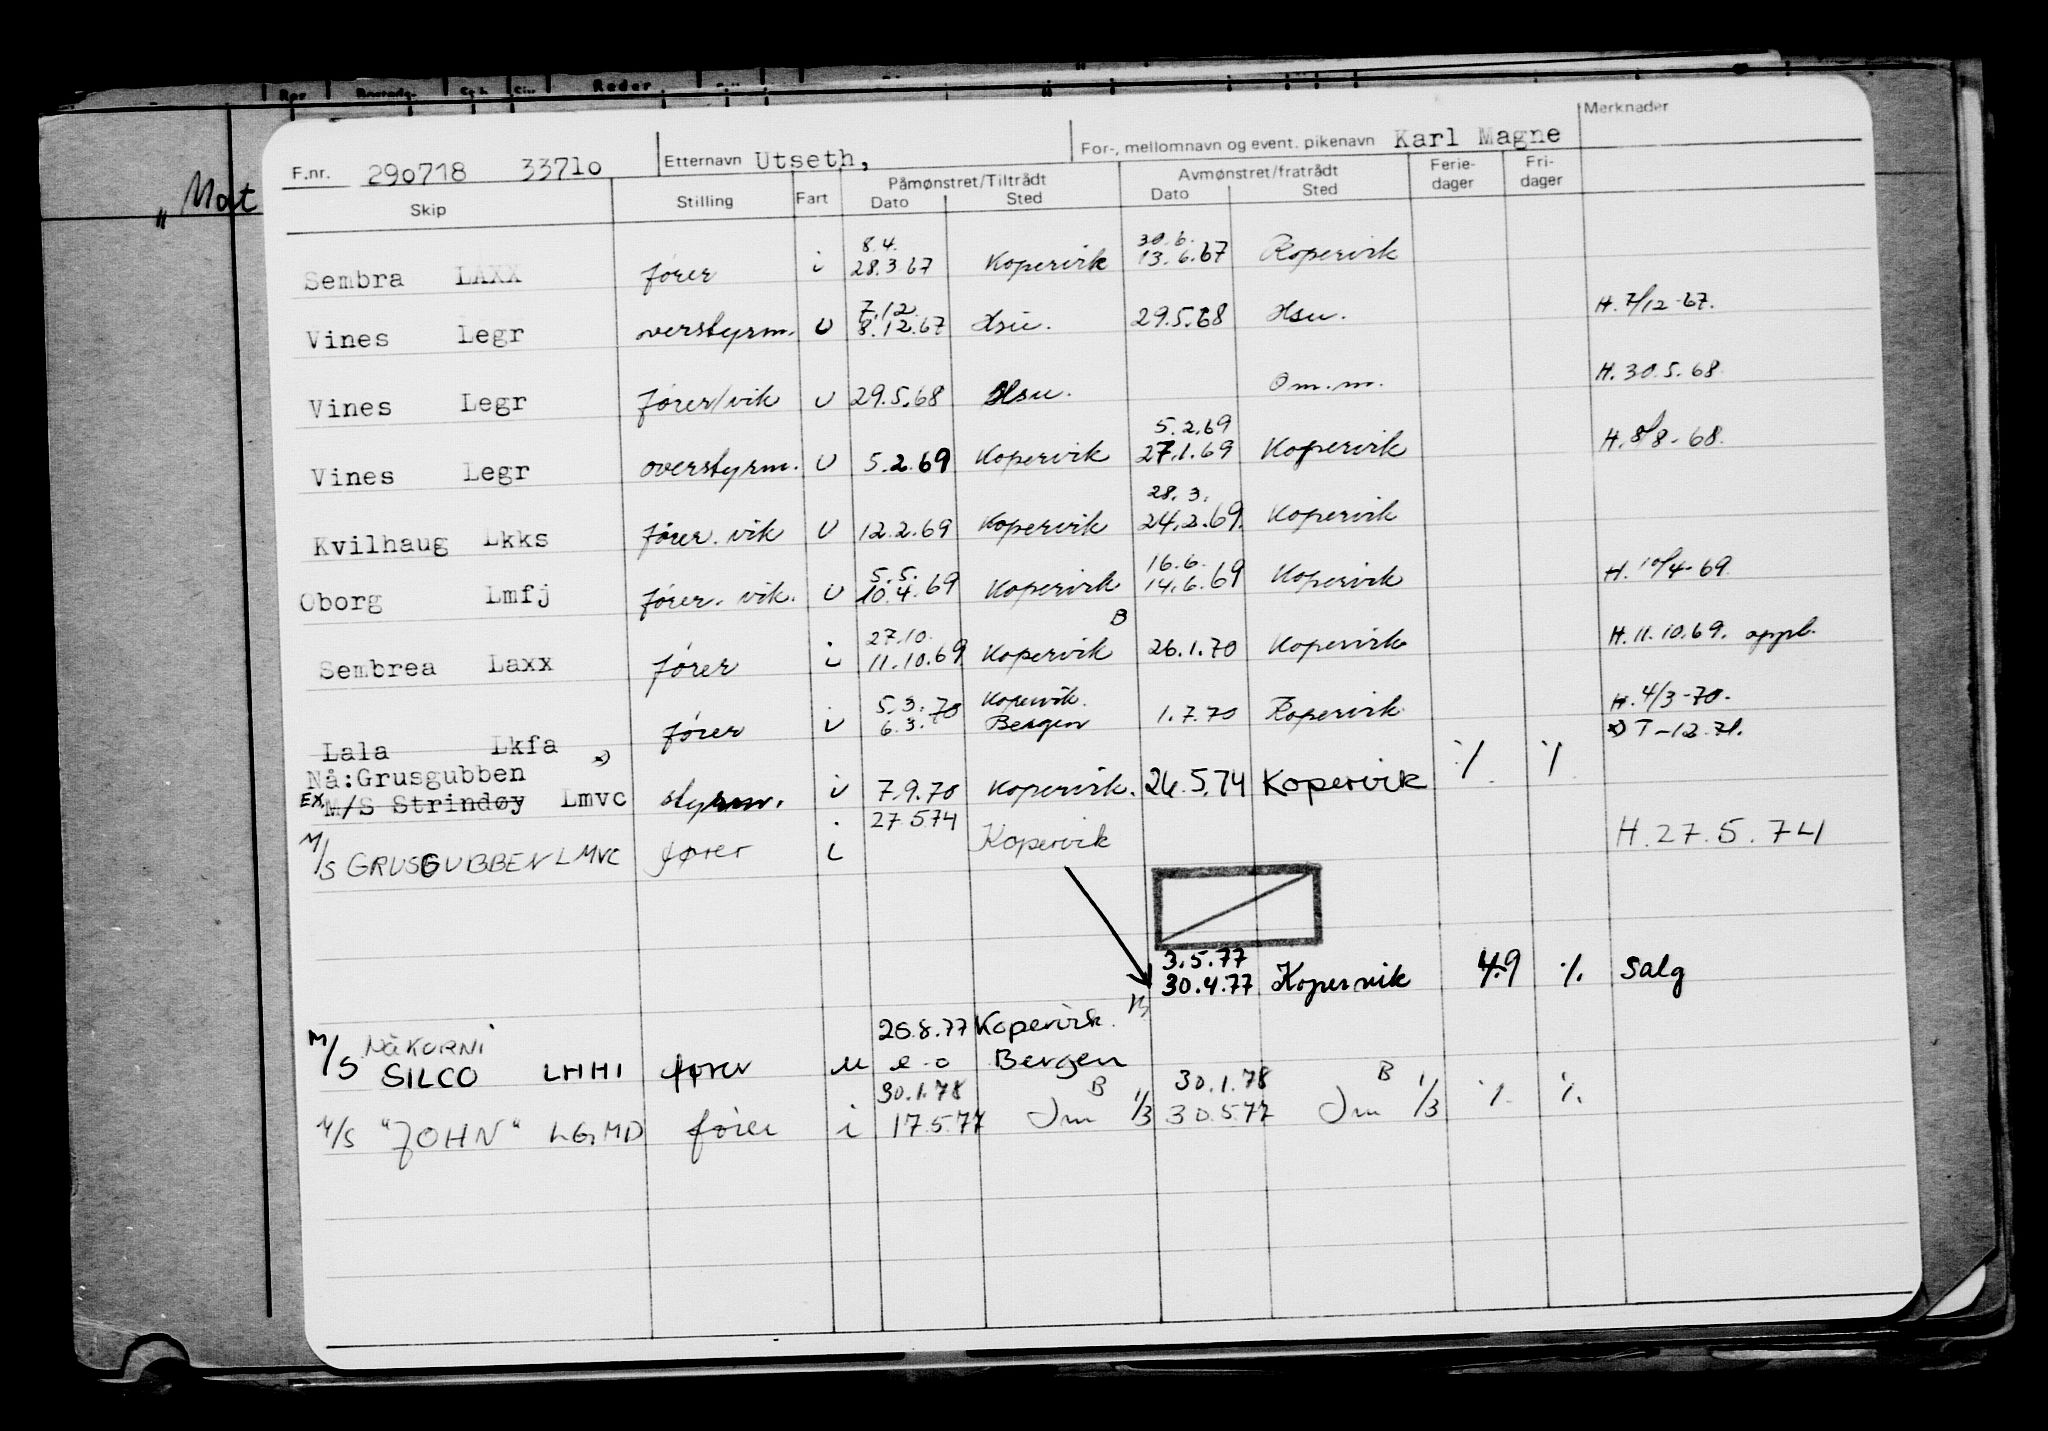 Reder
„ Mat
F.nr. 290718 33710 Etternavn Utseth, For-, mellomnavn og event. pikenavn Karl Magne Merknader
Skip Stilling Fart Påmønstret/Tiltrådt Dato Sted Avmønstret/fratrådt Dato Sted Ferie-dager Fri-dager
8.4. 30.6.
Sembra LAXX fører i 28.3.67 Kopervik 13.6.67 Kopervik
7.12.
Vines Legr overstyrm. u 8.12.67 Hsu. 29.5.68 Hsu. H. 7/12-67.
Vines Legr fører/vik u 29.5.68 Hsu. Om.m. H. 30.5.68
5.2.69
Vines Legr overstyrm. u 5.2.69 Kopervik 27.1.69 Kopervik H. 8/8-68.
28.3.
Kvilhaug Lkks fører. vik u 12.2.69 Kopervik 24.2.69. Kopervik
5.5. 16.6.
Oborg Lmfj fører. vik. u 10.4.69 Kopervik 14.6.69 Kopervik H. 10/4-69
27.10. B
Sembrea Laxx fører i 11.10.69 Kopervik 26.1.70 Kopervik H. 11.10.69. oppb.
5.3.70 Kopervik H. 4/3-70.
Lala Lkfa x) fører i 6.3. Bergen 1.7.70 Kopervik x) T-12.71.
Nå:Grusgubben
EX M/S Strindøy Lmvc styrm. i 7.9.70 Kopervik. 26.5.74 Kopervik ·/. ·/.
27.5.74
M/S GRUSGUBBEN LMVC fører i Kopervik H. 27.5.74
3.5.77
30.4.77 Kopervik 49 ·/. Salg
NÅ KORNI 26.8.77 Kopervik.
M/S SILCO LHHI fører u e-o Bergen
30.1.78 B 30.1.78 B
M/S "JOHN" LGMD fører i 17.5.77 Jm 1/3 30.5.77 Jm 1/3 ·/. ·/.